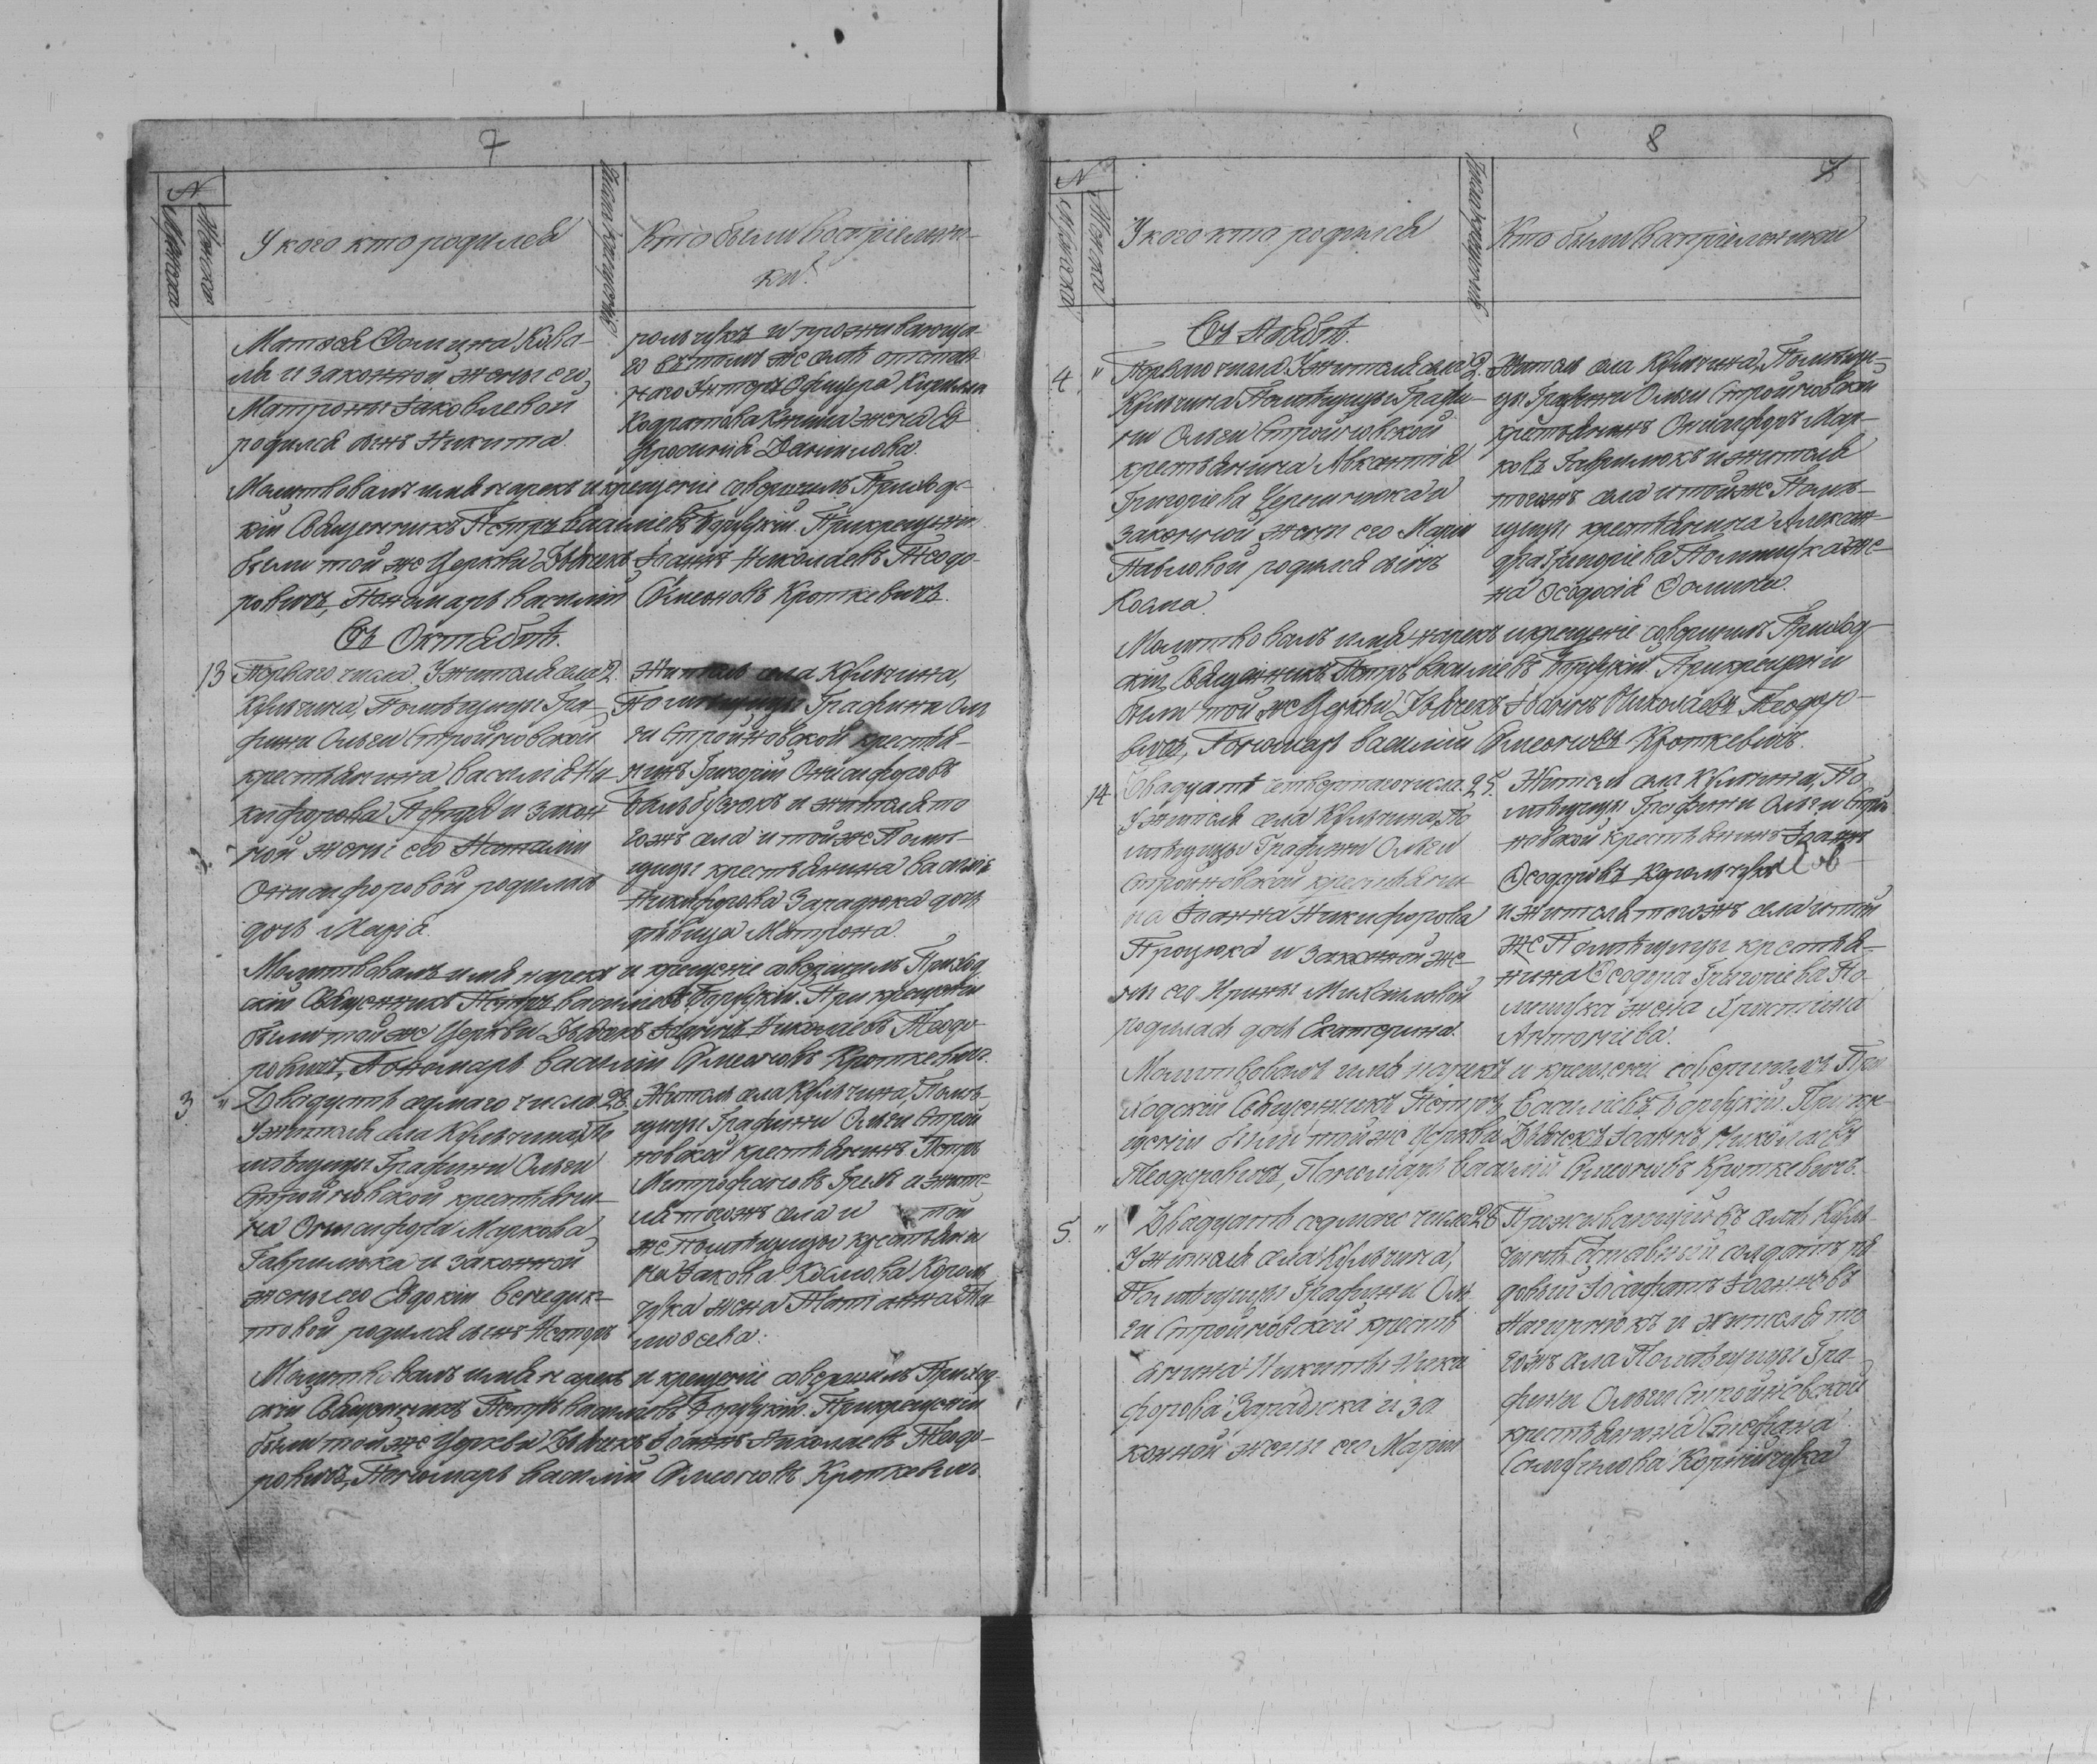 7
N
Мужеска
Женска
У кого кто родился
Число крещенія
Кто были воспріемни-
ки?
Матѳея Ѳомина Кова-
ля и законной жены его,
Матроны Іаковлевой
родился сынъ Никита.
рольчукъ и проживающа-
го въ томъ же селѣ отстав-
наго Унтеръ Офицера
жена Ев-
фросинія Даніилова.
Молитвовалъ имя нарекъ и крещеніе совершилъ Приход-
скій Священникъ Петръ Василіевъ Боруцкій. При крещеніи
были той же Церкви Дьячекъ Іоаннъ Николаевъ Теодо-
ровичъ, Пономарь Василій Симеоновъ Кроткевичъ.
Въ Октябрѣ.
13
Перваго числа У жителя села
Кульчина, Помѣщицы Гра-
фини Ольги Стройновской
крестьянина Василія Ни-
кифорова и закон
ной жены его Наталіи
Онисифоровой родилась
дочь Марія.
2.
Житель села Кульчина,
Помѣщицы Графини Оль
ги Стройновской крестья-
нинъ Григорій Онисифоровъ
и жителя то
гожъ села и тойже Помѣ-
щицы крестьянина Василія
Никифорова Зарадюка дочь
дѣвица Матрона.
Молитвовалъ имя нарекъ и крещеніе совершилъ Приход
скій Священникъ Петръ Василіевъ Боруцкій. При крещеніи
были той же Церкви Дьячекъ Іоаннъ Николаевъ Теодо-
ровичъ, Пономарь Василій Симеоновъ Кроткевичъ.
3 "
Двадцать седмаго числа
У жителя села Кульчина, По
мѣщицы Графини Ольги
Стройновской крестьяни-
на Онисифора Маркова
Гаврилюка и законной
жены его Евдокіи Венедик-
товой родился сынъ Несторъ
28.
Житель села Кульчина, Помѣ-
щицы Графини Ольги Строй
новской крестьянинъ Петръ
Митрофановъ и жите-
ля тогожъ села и той
же Помѣщицы крестьяни
на Іакова Космова Король
чука жена Татіанна Ти
моѳеева.
Молитвовалъ имя нарекъ и крещеніе совершилъ Приход
скій Священникъ Петръ Василіевъ Боруцкій. При крещеніи
были той же Церкви Дьячекъ Іоаннъ Николаевъ Теодо-
ровичъ, Пономарь Василій Симеоновъ Кроткевичъ.
8
N
Мужеска
Женска
У кого кто родился
Число крещенія
Кто были воспріемники
Въ Ноябрѣ.
4. "
Перваго числа У жителя села
Кульчина Помѣщицы Графи-
ни Ольги Стройновской
крестьянина Авксентія
Григоріева и
законной жены его Маріи
Павловой родился сынъ
Косма.
2.
Житель села Кульчина, Помѣщи-
цы Графини Ольги Стройновской
крестьянинъ Онисифоръ Мар-
ковъ Гаврилюкъ и жителя
тогожъ села и тойже Помѣ-
щицы крестьянина Алексан-
дра Григоріева же-
на Ѳеодосія Ѳомина.
Молитвовалъ имя нарекъ и крещеніе совершилъ Приход-
скій Священникъ Петръ Василіевъ Боруцкій. При крещеніи
были той же Церкви Дьячекъ Іоаннъ Николаевъ Теодоро-
вичъ, Пономарь Василій Симеоновъ Кроткевичъ.
14
Двадцать четвертаго числа
У жителя села Кульчина, По
мѣщицы Графини Ольги
Стройновской крестьяни-
на Іоанна Никифорова
Процюка и законной же-
ны его Ирины Михаиловой
родилась дочь Екатерина.
25.
Житель села Кульчина, По
мѣщицы Графини Ольги Строй
новской крестьянинъ Іоаннъ
Ѳеодоровъ
и жителя тогожъ села и той
же Помѣщицы крестья-
нина Ѳеодора Григоріева По-
жена Христина
Антоніева.
Молитвовалъ имя нарекъ и крещеніе совершилъ При
ходскій Священникъ Петръ Василіевъ Боруцкій. При кре-
щеніи были той же Церкви Дьячекъ Іоаннъ Николаевъ
Теодоровичъ, Пономарь Василій Симеоновъ Кроткевичъ.
5. "
Двадцать седмаго числа
У жителя села Кульчина,
Помѣщицы Графини Оль
ги Стройновской кресть
янина Никиты Ники
форова Зарадюка и за
конной жены его Маріи
28
Проживающій въ селѣ Куль
чинѣ солдатъ ря
довый Іосафатъ Іоанновъ
и жителя то
гожъ села Помѣщицы Гра-
фини Ольги Стройновской
крестьянина Стефана
Самуилова Корнійчука